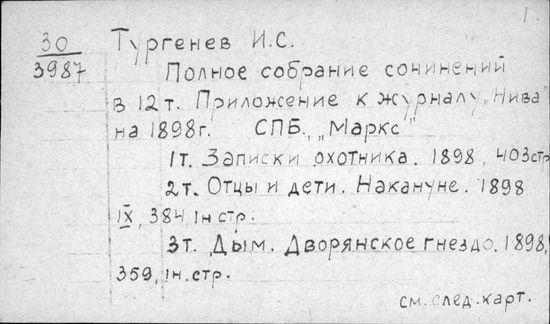 1.
30 Тургенев И.С.
3987 Полное собрание сочинений
в 12 т. Приложение к журналу „Нива"
на 1898 г. СПБ., „Маркс"
1 т. Записки охотника. 1898, 403 стр
2 т. Отцы и дети. Накануне. 1898
IX, 384, 1н стр.
3 т. Дым. Дворянское гнездо. 1898,
359, 1н. стр.
см. след. карт.